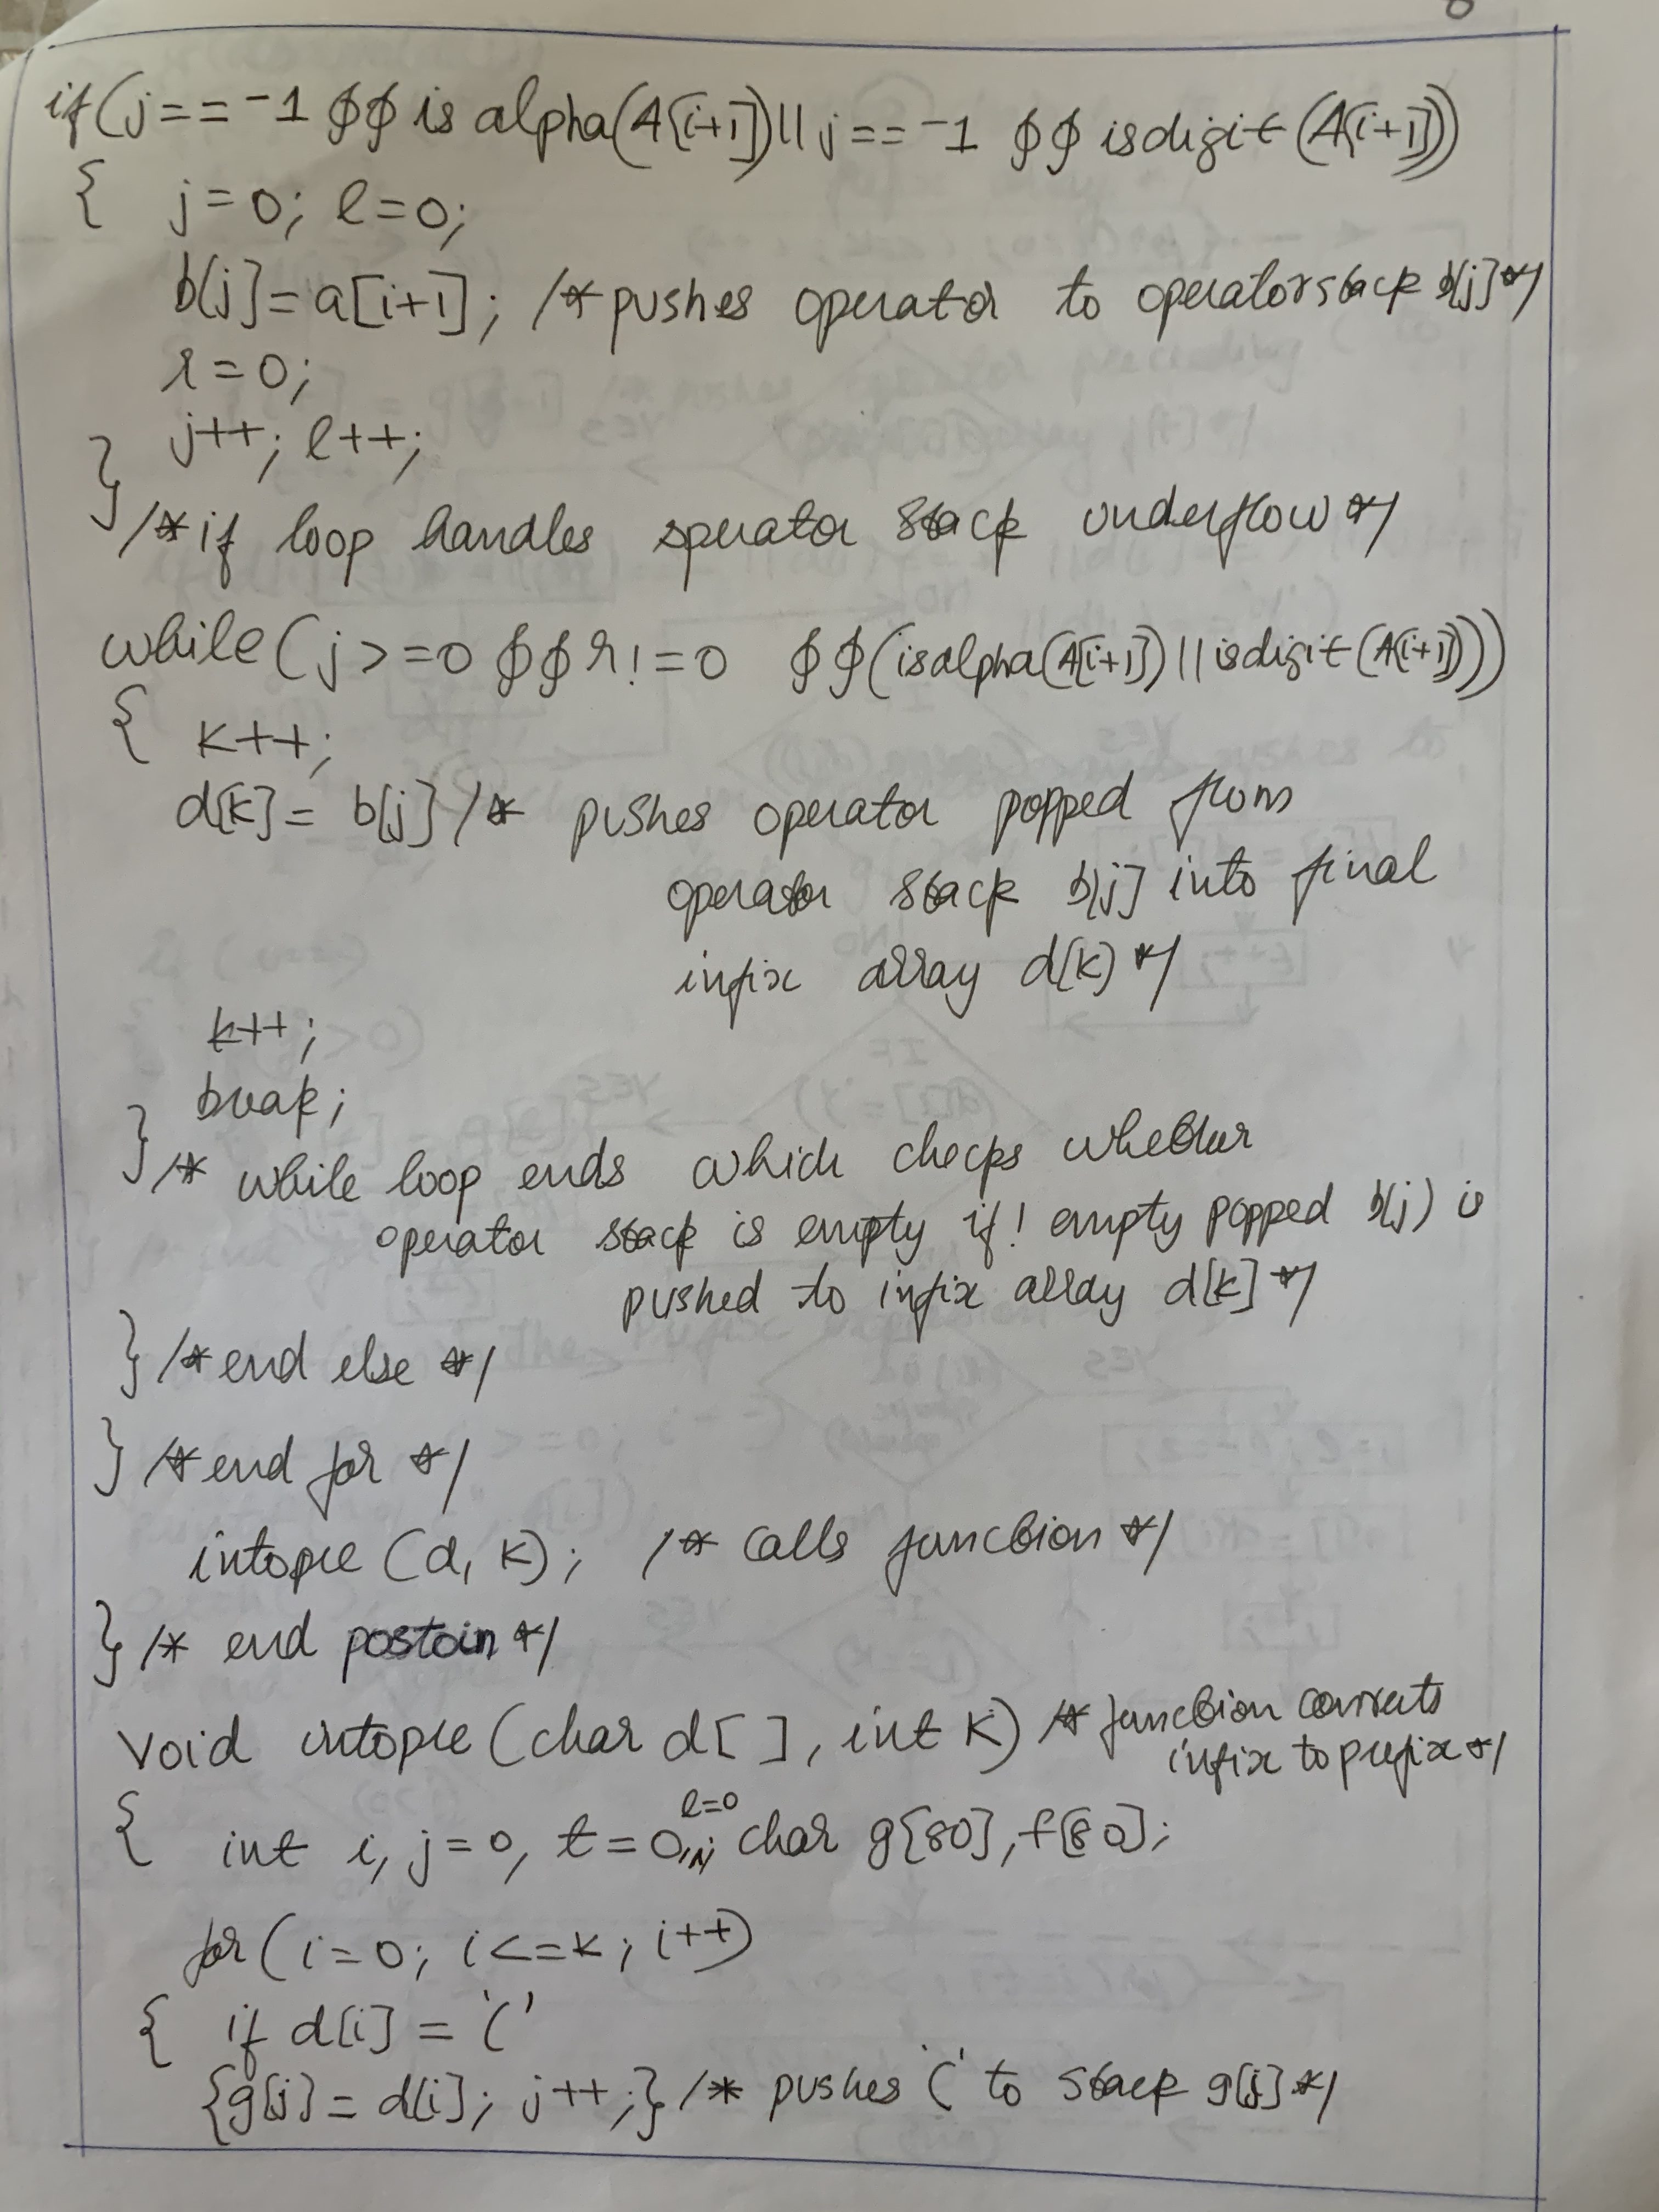 if(j==-1 && is alpha(A[i+1])||j==-1 && isdigit(A[i+1]))
{ j=0; l=0;
b[j]=a[i+1]; /*pushes operator to operatorstack b[j]*/
r=0;
j++; l++;
} /*if loop handles operator stack underflow */
while(j>=0 && r!=0 &&(isalpha(A[i+1])||isdigit(A[i+1])))
{ k++;
d[k]= b[j] /* pushes operator popped from
operator stack b[j] into final
infix array d[k) */
k++;
break;
} /* while loop ends which checks whether
operator stack is empty if! empty popped b(j) is
pushed to infix array d[k] */
} /*end else */
} /*end for */
intopre (d, k); /* calls function */
} /* end postoin */
void intopre (char d[ ], int k) /* function converts
infix to prefix */
l=0
{ int i, j=0, t=0,n; char g[80], f[80];
for(i=0; i<=k; i++)
{ if d[i] = '('
{g[j]= d[i]; j++;} /* pushes '(' to stack g[j] */